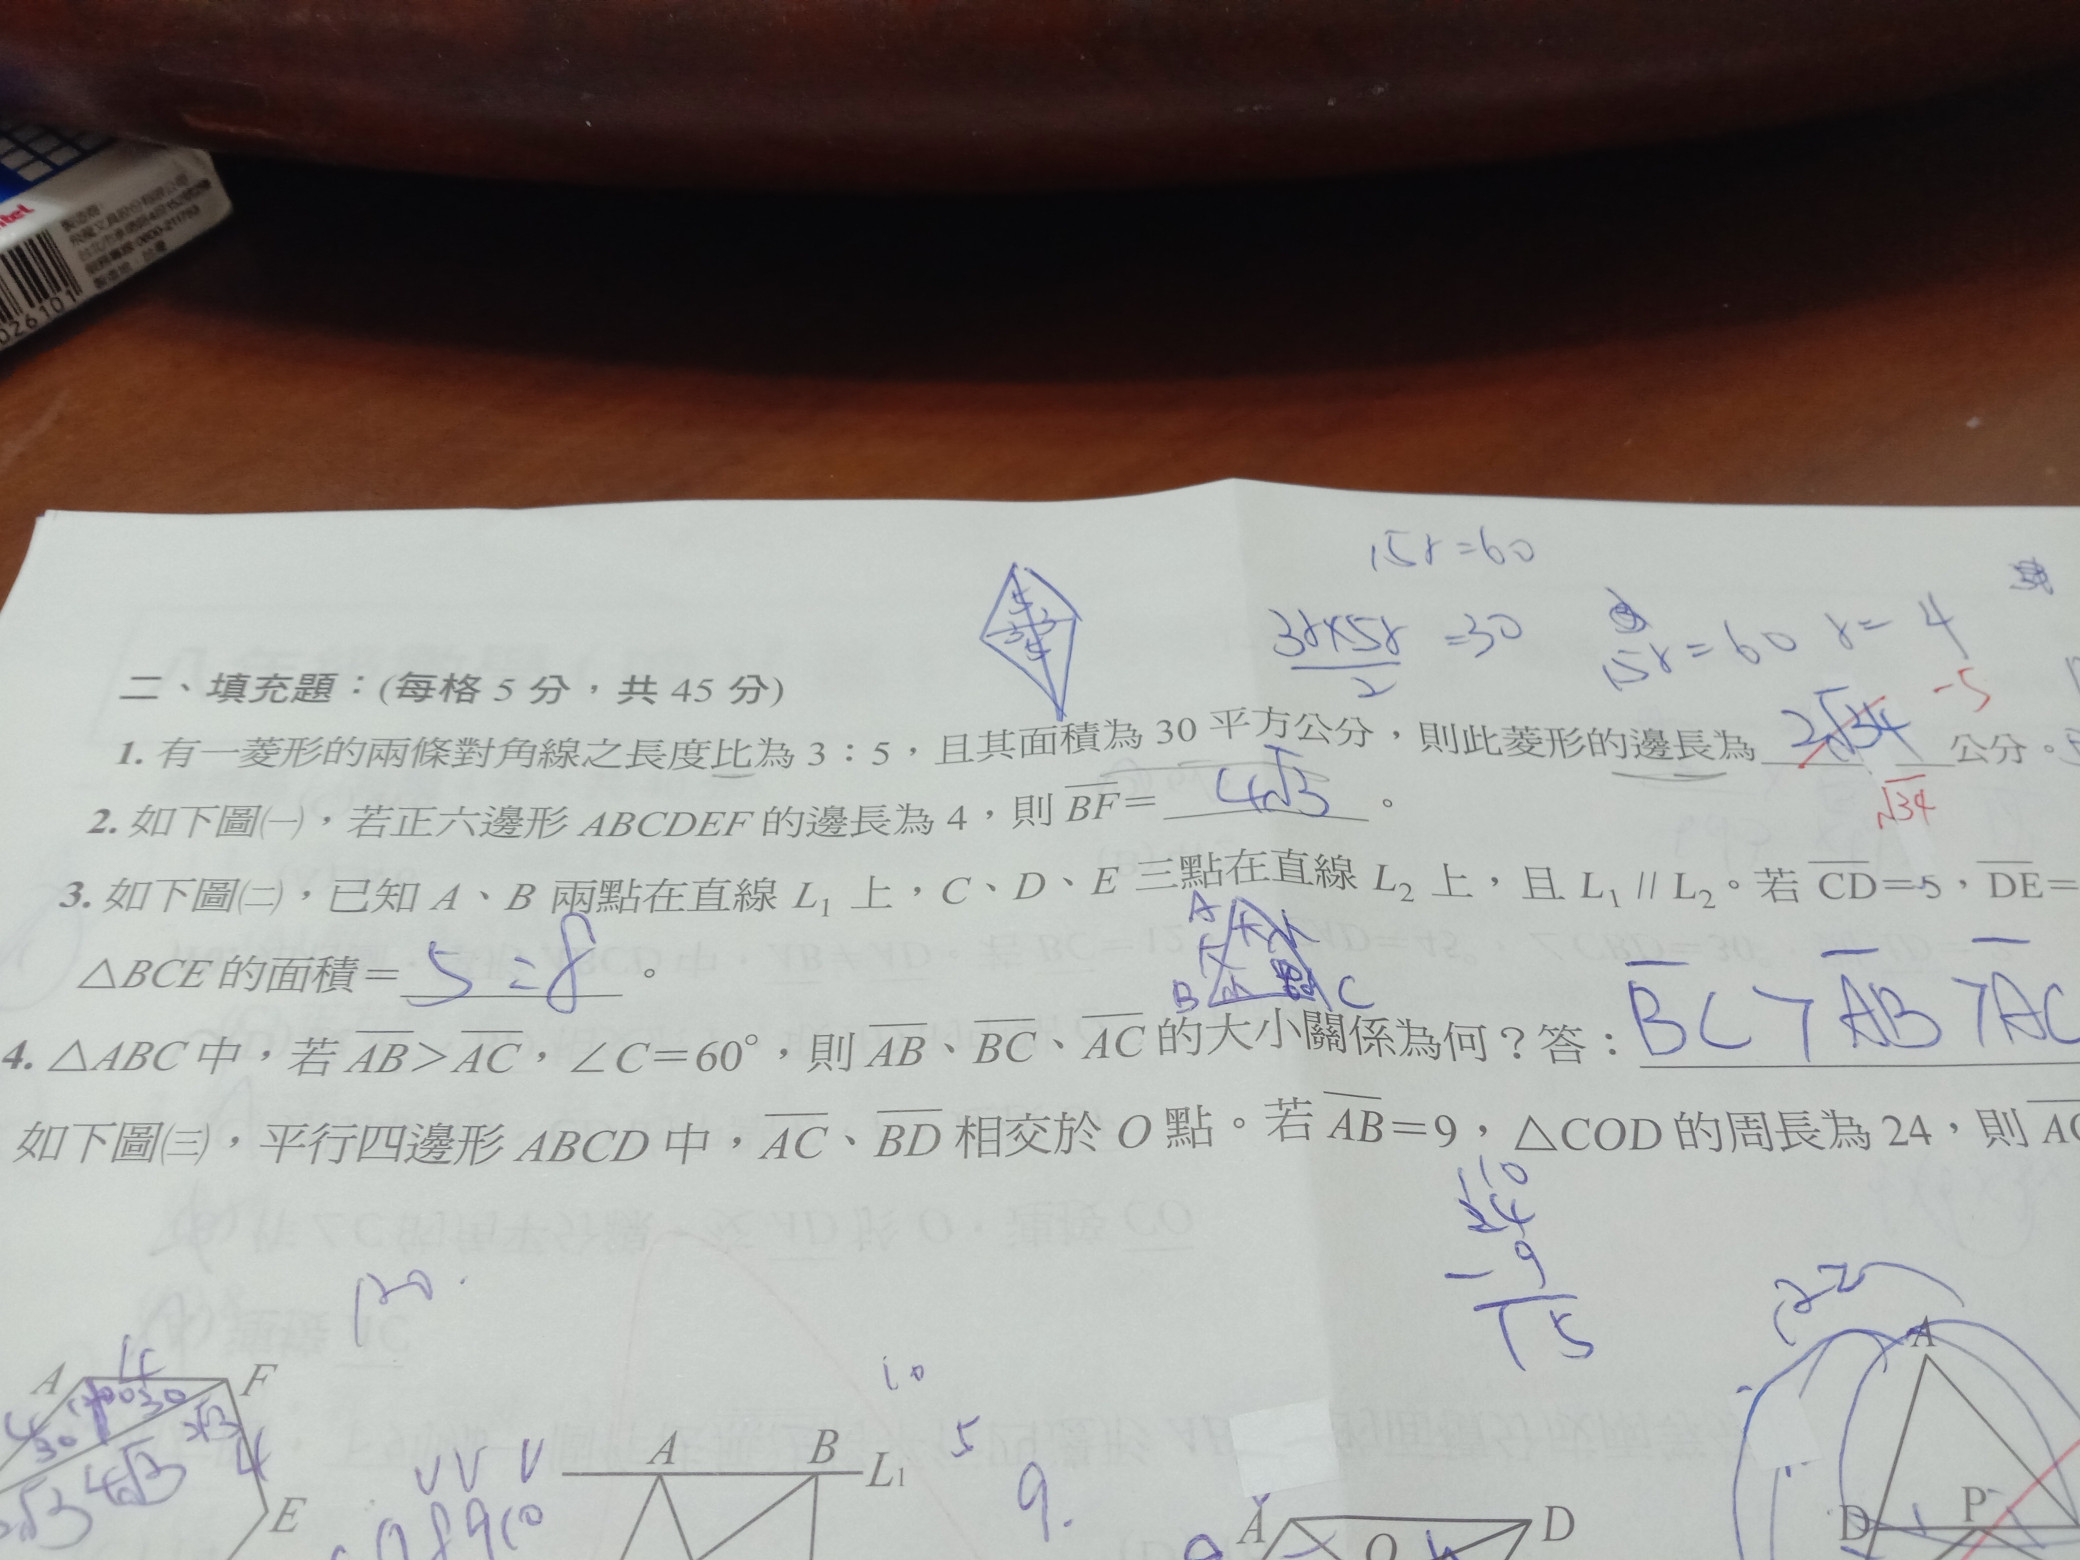 15r=60
3r×5r =30
2
15r=60 r=4
二、填充題：(每格 5 分，共 45 分)
-5
1. 有一菱形的兩條對角線之長度比為 3：5，且其面積為 30 平方公分，則此菱形的邊長為 2√34 公分。
√34
2. 如下圖㈠，若正六邊形 ABCDEF 的邊長為 4，則 BF= 4√3 。
3. 如下圖㈡，已知 A、B 兩點在直線 L₁ 上，C、D、E 三點在直線 L₂ 上，且 L₁ // L₂。若 CD=5，DE=
△BCE 的面積= 5:8 。
A
B C
4. △ABC 中，若 AB>AC，∠C=60°，則 AB、BC、AC 的大小關係為何？答：BC>AB>AC
如下圖㈢，平行四邊形 ABCD 中，AC、BD 相交於 O 點。若 AB=9，△COD 的周長為 24，則 AC
10
24
-9
15
120
A 4 F
30
4√3
4
E
A B L₁
10
5
9.
8 9 10
A D
O
A
D P
026101